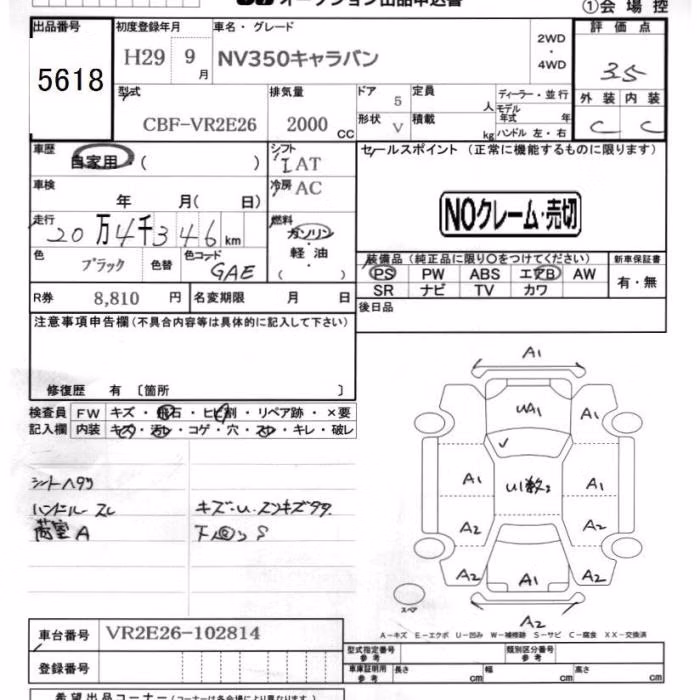 オークション出品申込書
①会場控
出品番号 5618
初度登録年月 H29 9月
車名・グレード NV350キャラバン
2WD・4WD
評価点 3.5
型式 CBF-VR2E26
排気量 2000 CC
ドア 5
形状 V
定員 人
積載 kg
ディーラー・並行
モデル年式 年
ハンドル 左・右
外装 C
内装 C
車歴 自家用・( )
シフト IAT
セールスポイント (正常に機能するものに限ります)
車検 年 月( 日)
冷房 AC
NOクレーム・売切
走行 20万4千346km
燃料 ガソリン・軽油・( )
色 ブラック
色替
色コード GAE
装備品(純正品に限り○をつけてください)
新車保証書
PS PW ABS エアB AW
SR ナビ TV カワ
有・無
R券 8,810円
名変期限 月 日
後日品
注意事項申告欄(不具合内容等は具体的に記入して下さい)
修復歴 有 〔箇所 〕
検査員記入欄
FW キズ・飛石・ヒビ割・リペア跡・×要
内装 キズ・汚レ・コゲ・穴・スレ・キレ・破レ
シートヘタリ
ハンドル スレ
荷室 A
キズ・U・スリキズタタ
A1
UA1 A1
A1 U1数2 A1
A2 A2
A2 A1 A2
A2
スペア
A-キズ E-エクボ U-凹み W-補修跡 S-サビ C-腐食 XX-交換済
車台番号 VR2E26-102814
登録番号
型式指定番号 参考
類別区分番号 参考
車庫証明用 参考 長さ cm 幅 cm 高さ cm
希望出品コーナー(コーナー名は各会場により異なります)